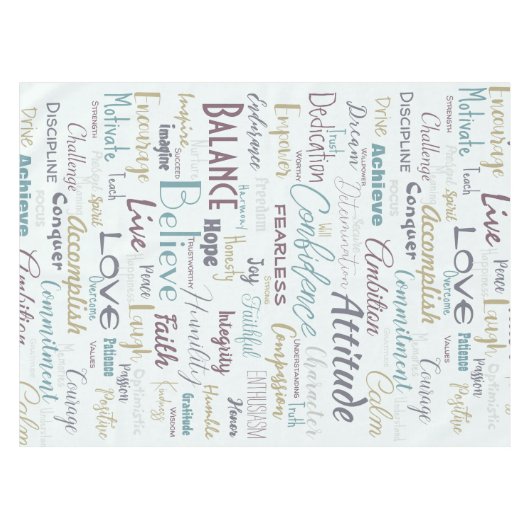 Encourage
Motivate
STRENGTH
Teach
DISCIPLINE
Challenge
Spirit
Drive
Achieve
FOCUS
Conquer
Accomplish
Live
LOVE
Peace
Happiness
Overcome
Laugh
Commitment
Ambition
Patience
Passion
VALUES
Memories
Optimistic
Positive
Courage
Calm
Inspire
SUCCEED
imagine
Nurture
BALANCE
Believe
TRUSTWORTHY
Hope
Harmony
Honesty
Faith
Humility
Integrity
Kindness
WISDOM
Gratitude
Humble
Honor
Endurance
Freedom
Empower
WORTHY
FEARLESS
Joy
STRONG
Faithful
ENTHUSIASM
Compassion
UNDERSTANDING
Truth
Character
Confidence
Dedication
Trust
Will
Dream
WILLPOWER
Determination
Attitude
Ambition
Calm
Drive
Achieve
DISCIPLINE
FOCUS
Conquer
Challenge
STRENGTH
Spirit
Accomplish
Commitment
Memories
VALUES
Courage
Motivate
Teach
LOVE
Overcome
Patience
Encourage
Live
Peace
Happiness
Laugh
Passion
Optimistic
Positive